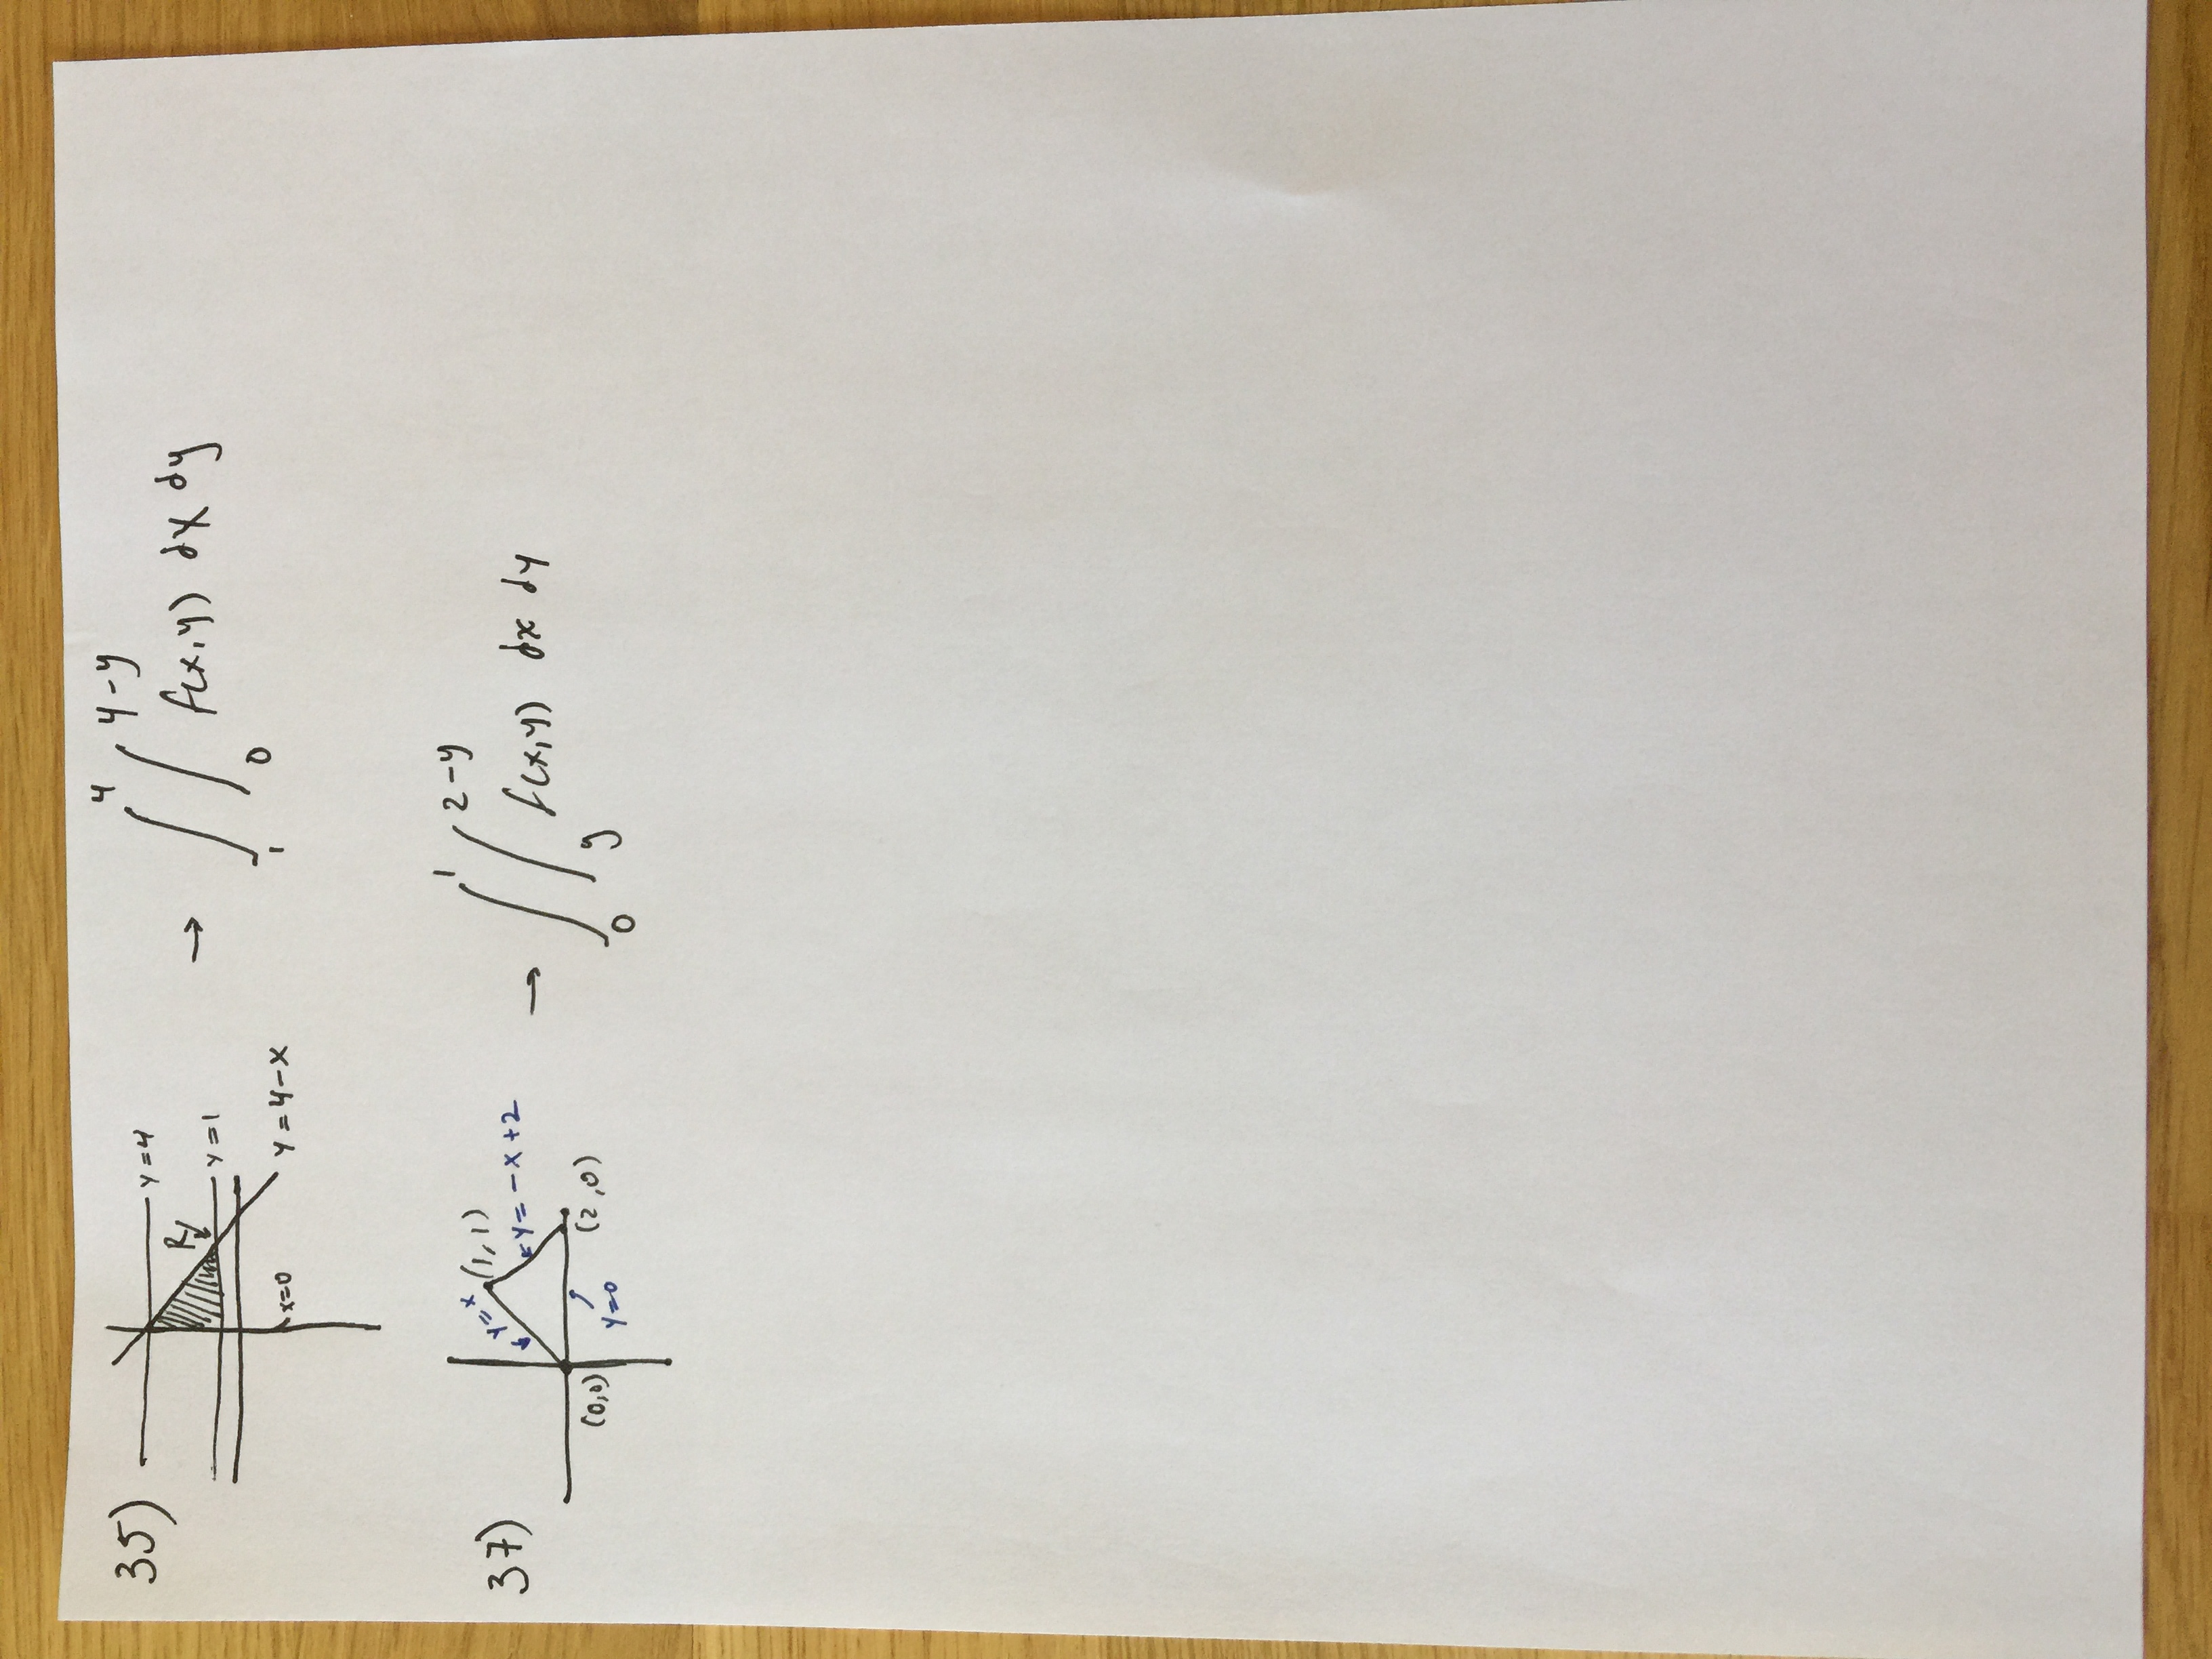 35)
y=4
R
y=1
x=0
y=4-x
→ ∫₁⁴ ∫₀^(4-y) f(x,y) dx dy
37)
y=x
(1,1)
y=-x+2
(0,0)
y=0
(2,0)
→ ∫₀¹ ∫_y^(2-y) f(x,y) dx dy